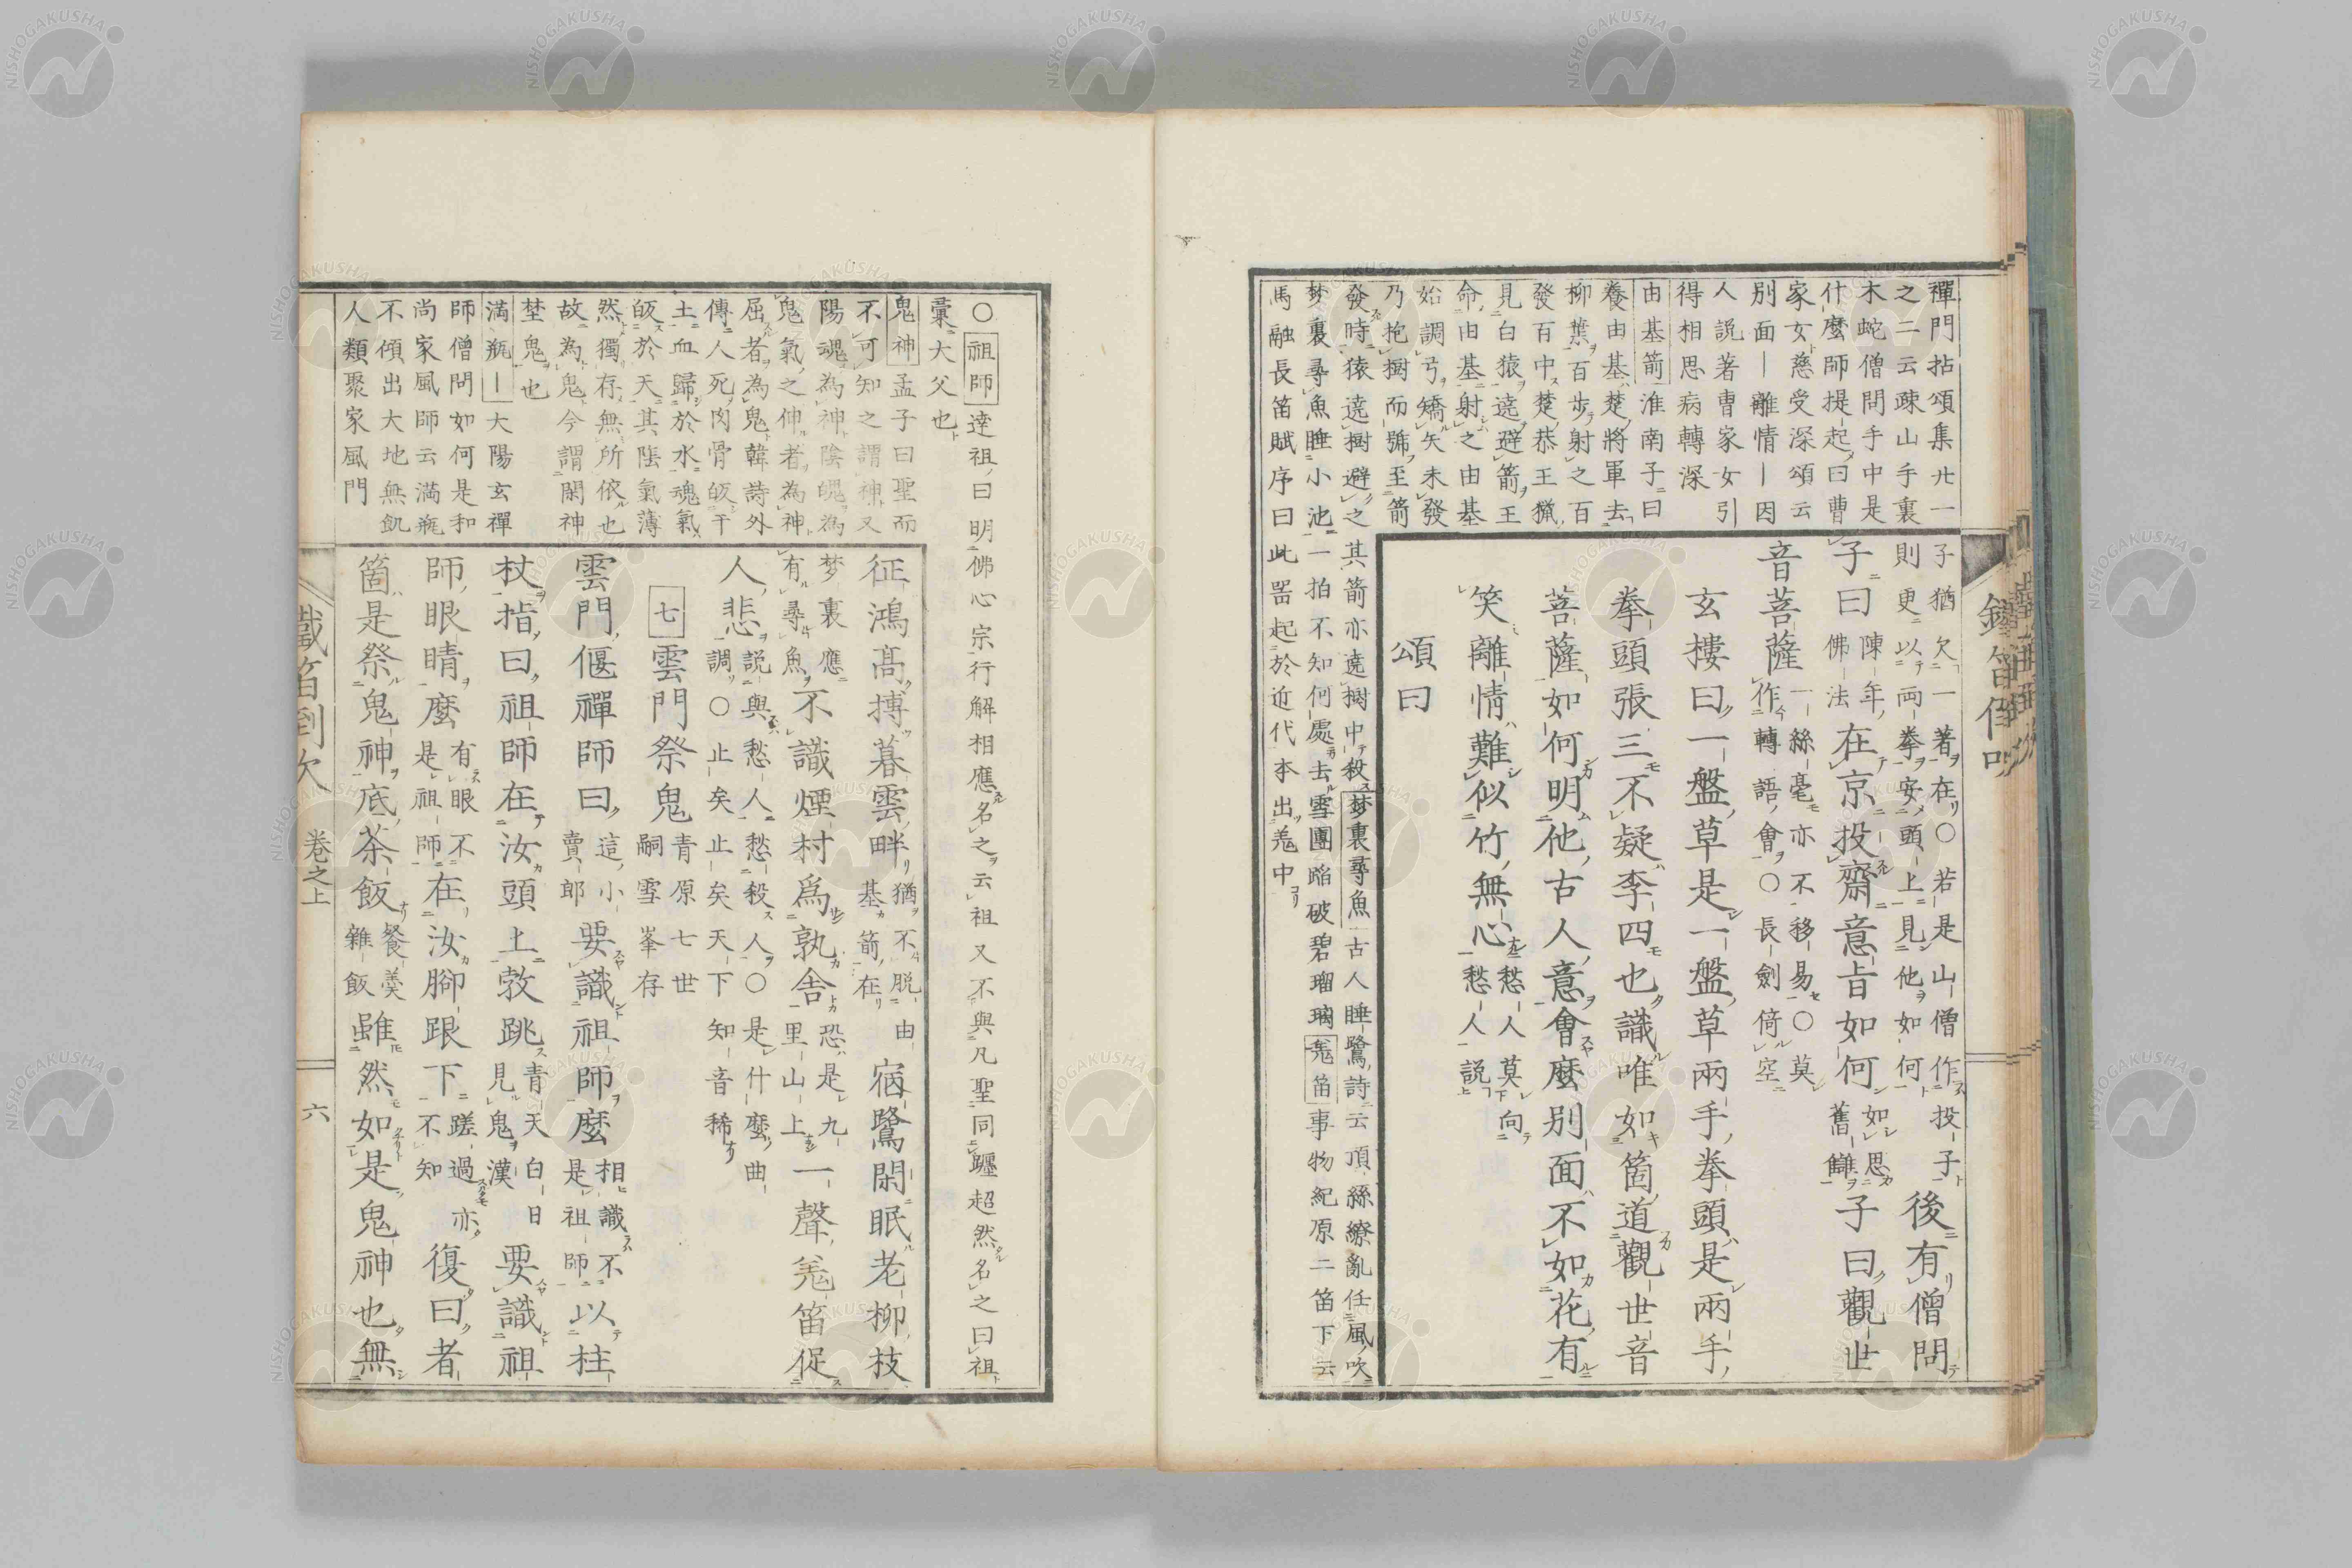 禪門拈頌集廿一
之二云疎山手裏
木蛇僧問手中是
什麼師提起曰曹
家女慈受深頌云
別面—離情—因
人説著曹家女引
得相思病轉深
由基箭淮南子曰
養由基楚將軍去
柳葉百步射之百
發百中楚恭王獵
見白猿遶避箭王
命由基射之由基
始調弓矯矢未發
乃抱樹而號至箭
發時猿遶樹避之其箭亦遶樹中殺夢裏尋魚古人睡鷺詩云頂絲繚亂任風吹
梦裏尋魚睡小池一拍不知何處去雪團踏破碧瑠璃羗笛事物紀原二笛下云
馬融長笛賦序曰此器起於近代本出羗中
子猶欠一著在〇若是山僧作投子
則更以両拳安頭上見他如何
後有僧問
子曰
陳年
佛法
在京投齋意旨如何
如思
舊讎
子曰觀世
音菩薩
一絲毫亦不移易〇莫
作轉語會〇長劍倚空
玄樓曰一盤草是一盤草兩手拳頭是兩手
拳頭張三不疑李四也識唯如箇道觀世音
菩薩如何明他古人意會麼別面不如花有
笑離情難似竹無心
愁人莫向
愁人説
頌曰
〇祖師達祖曰明佛心宗行解相應名之云祖又不與凡聖同躔超然名之曰祖
彙大父也
鬼神孟子曰聖而
不可知之謂神又
陽魂為神陰魄為
鬼氣之伸者為神
屈者為鬼韓詩外
傳人死肉骨皈于
土血歸於水魂氣
皈於天其陰氣薄
然獨存無所依也
故為鬼今謂閑神
埜鬼也
満瓶—大陽玄禪
師僧問如何是和
尚家風師云満瓶
不傾出大地無飢
人類聚家風門
征鴻髙摶暮雲畔
猶不脱由
基箭在
宿鷺閑眠老柳枝
梦裏應
有尋魚
不識煙村爲孰舎
恐是九
里山上
一聲羗笛促
人悲
説與愁人愁殺人〇是什麼曲
調〇止矣止矣天下知音稀
七雲門祭鬼
青原七世
嗣雪峯存
雲門偃禪師曰
這小
賣郎
要識祖師麼
相識不
是祖師
以柱
杖指曰祖師在汝頭上㪍跳
青天白日
見鬼漢
要識祖
師眼睛麼
有眼不
是祖師
在汝脚跟下
蹉過亦
不知
復曰者
箇是祭鬼神底茶飯
餐羮
雜飯
雖然如是鬼神也無
卷之上
六